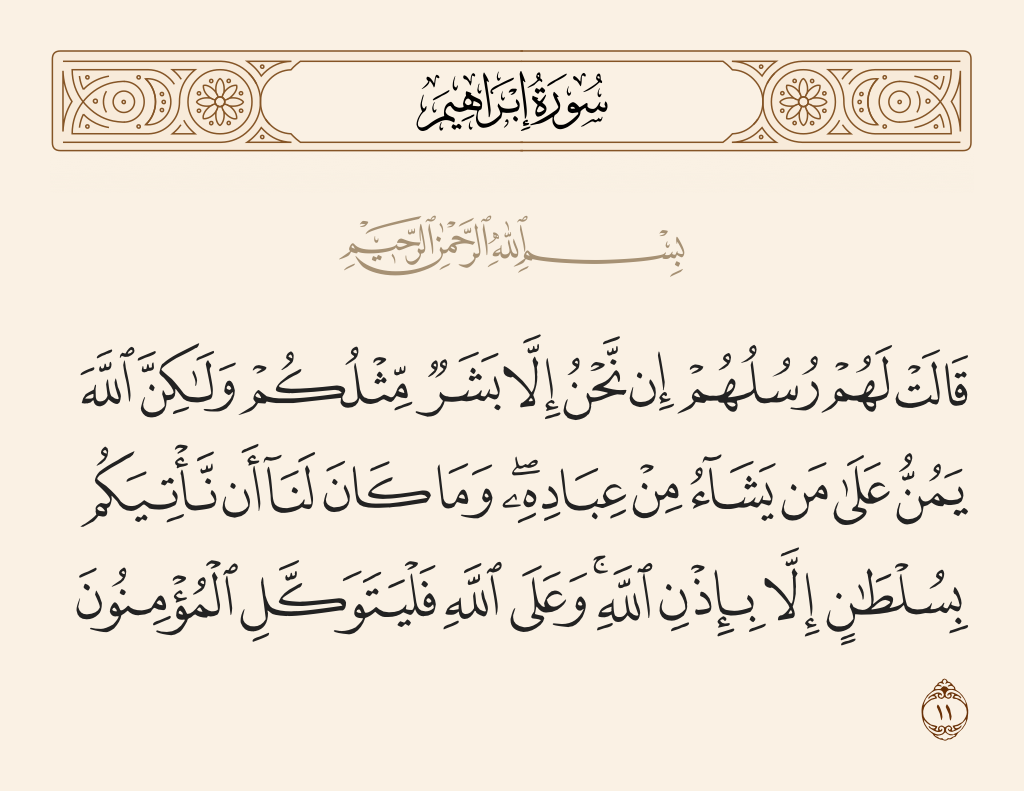 سُورَةُ إِبْرَاهِيمَ
بِسْمِ ٱللَّهِ ٱلرَّحْمَٰنِ ٱلرَّحِيمِ
قَالَتْ لَهُمْ رُسُلُهُمْ إِن نَّحْنُ إِلَّا بَشَرٌ مِّثْلُكُمْ وَلَـٰكِنَّ ٱللَّهَ
يَمُنُّ عَلَىٰ مَن يَشَآءُ مِنْ عِبَادِهِۦۖ وَمَا كَانَ لَنَآ أَن نَّأْتِيَكُم
بِسُلْطَـٰنٍ إِلَّا بِإِذْنِ ٱللَّهِۚ وَعَلَى ٱللَّهِ فَلْيَتَوَكَّلِ ٱلْمُؤْمِنُونَ
١١